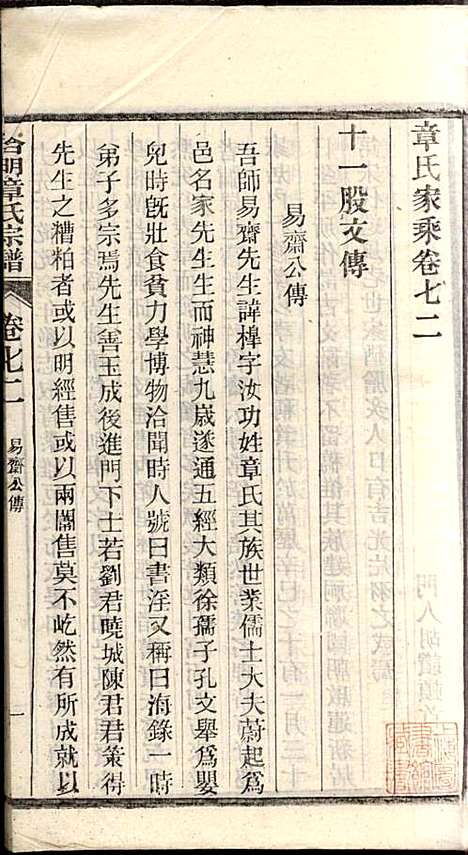 章氏家乘卷七二
十一股文傳
易齋公傳
吾師易齋先生諱樟字汝功姓章氏其族世業儒士大夫蔚起爲
邑名家先生生而神慧九歲遂通五經大類徐孺子孔文舉爲嬰
兒時旣壯食貧力學博物洽聞時人號曰書淫又稱曰海錄一時
弟子多宗焉先生善玉成後進門下士若劉君曉城陳君君策得
先生之糟粕者或以明經售或以兩闈售莫不屹然有所成就以
章氏宗譜
卷七二
易齋公傳
一